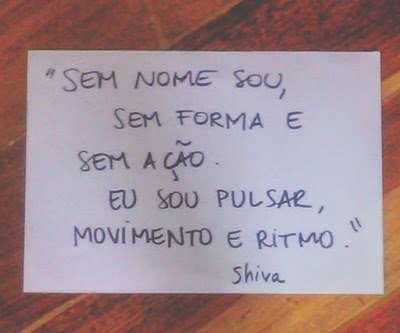 "SEM NOME SOU,
SEM FORMA E
SEM AÇÃO.
EU SOU PULSAR,
MOVIMENTO E RITMO."
Shiva